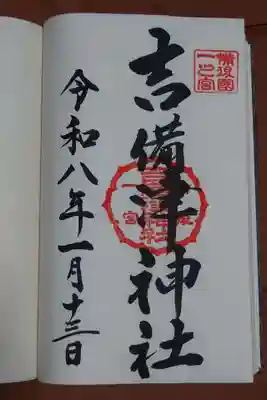 備後國
一之宮
吉備津神社
令和八年一月十三日